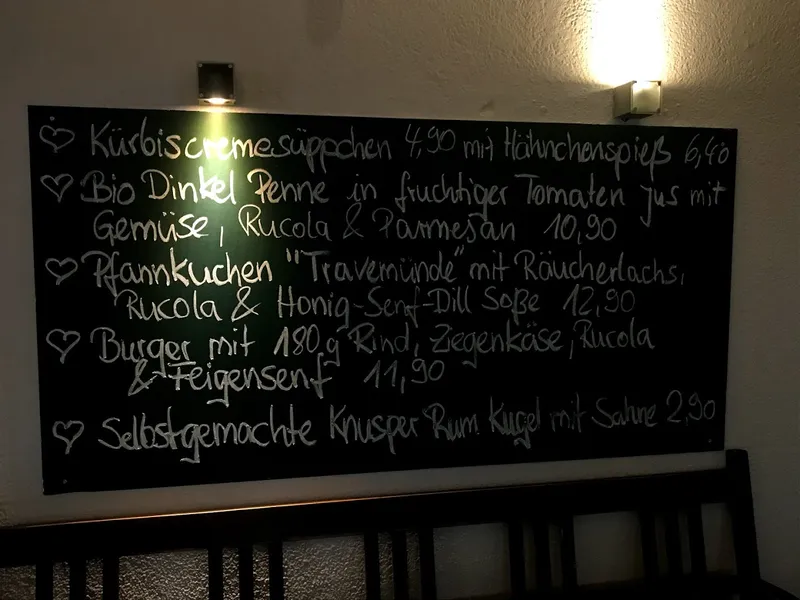 ♡ Kürbiscremesüppchen 4,90 mit Hähnchenspieß 6,40
♡ Bio Dinkel Penne in fruchtiger Tomaten jus mit
Gemüse, Rucola & Parmesan 10,90
♡ Pfannkuchen "Travemünde" mit Räucherlachs,
Rucola & Honig-Senf-Dill Soße 12,90
♡ Burger mit 180g Rind, Ziegenkäse, Rucola
& Feigensenf 11,90
♡ Selbstgemachte Knusper Rum Kugel mit Sahne 2,90